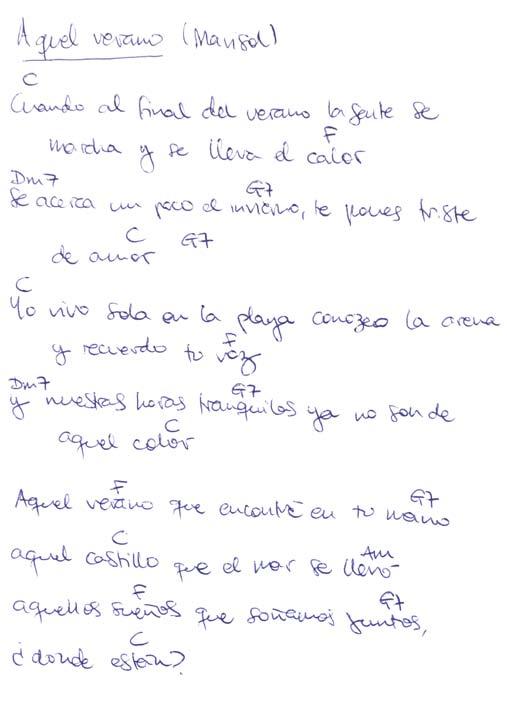 Aquel verano (Marisol)
C
Cuando al final del verano la gente se
F
marcha y se lleva el calor
Dm7 G7
Se acerca un poco el invierno, te pones triste
C G7
de amor
C
Yo vivo sola en la playa conozco la arena
F
y recuerdo tu voz
Dm7 G7
y nuestras horas tranquilas ya no son de
C
aquel color
F G7
Aquel verano que encontré en tu mano
C Am
aquel castillo que el mar se llevó
F G7
aquellos sueños que soñamos juntos,
C
¿donde están?